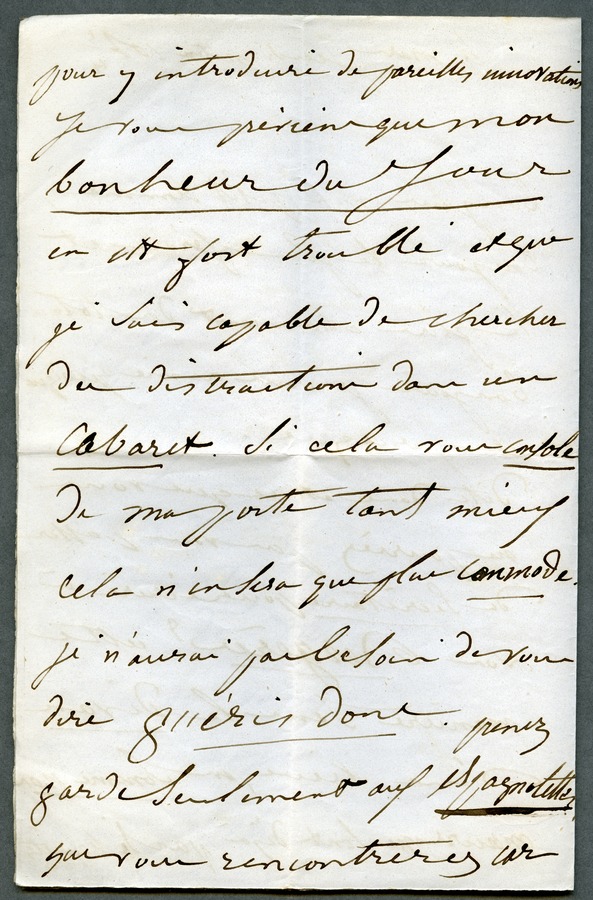 pour y introduire de pareilles innovations
Je vous préviens que mon
bonheur du Jour
en est fort troublé et que
je suis capable de chercher
des distractions dans un
Cabaret. Si cela vous console
de ma perte tant mieux
cela n'en sera que plus commode.
je n'aurai pas besoin de vous
dire guéris donc. prenez
garde seulement aux espagnolettes
que vous rencontrerez car